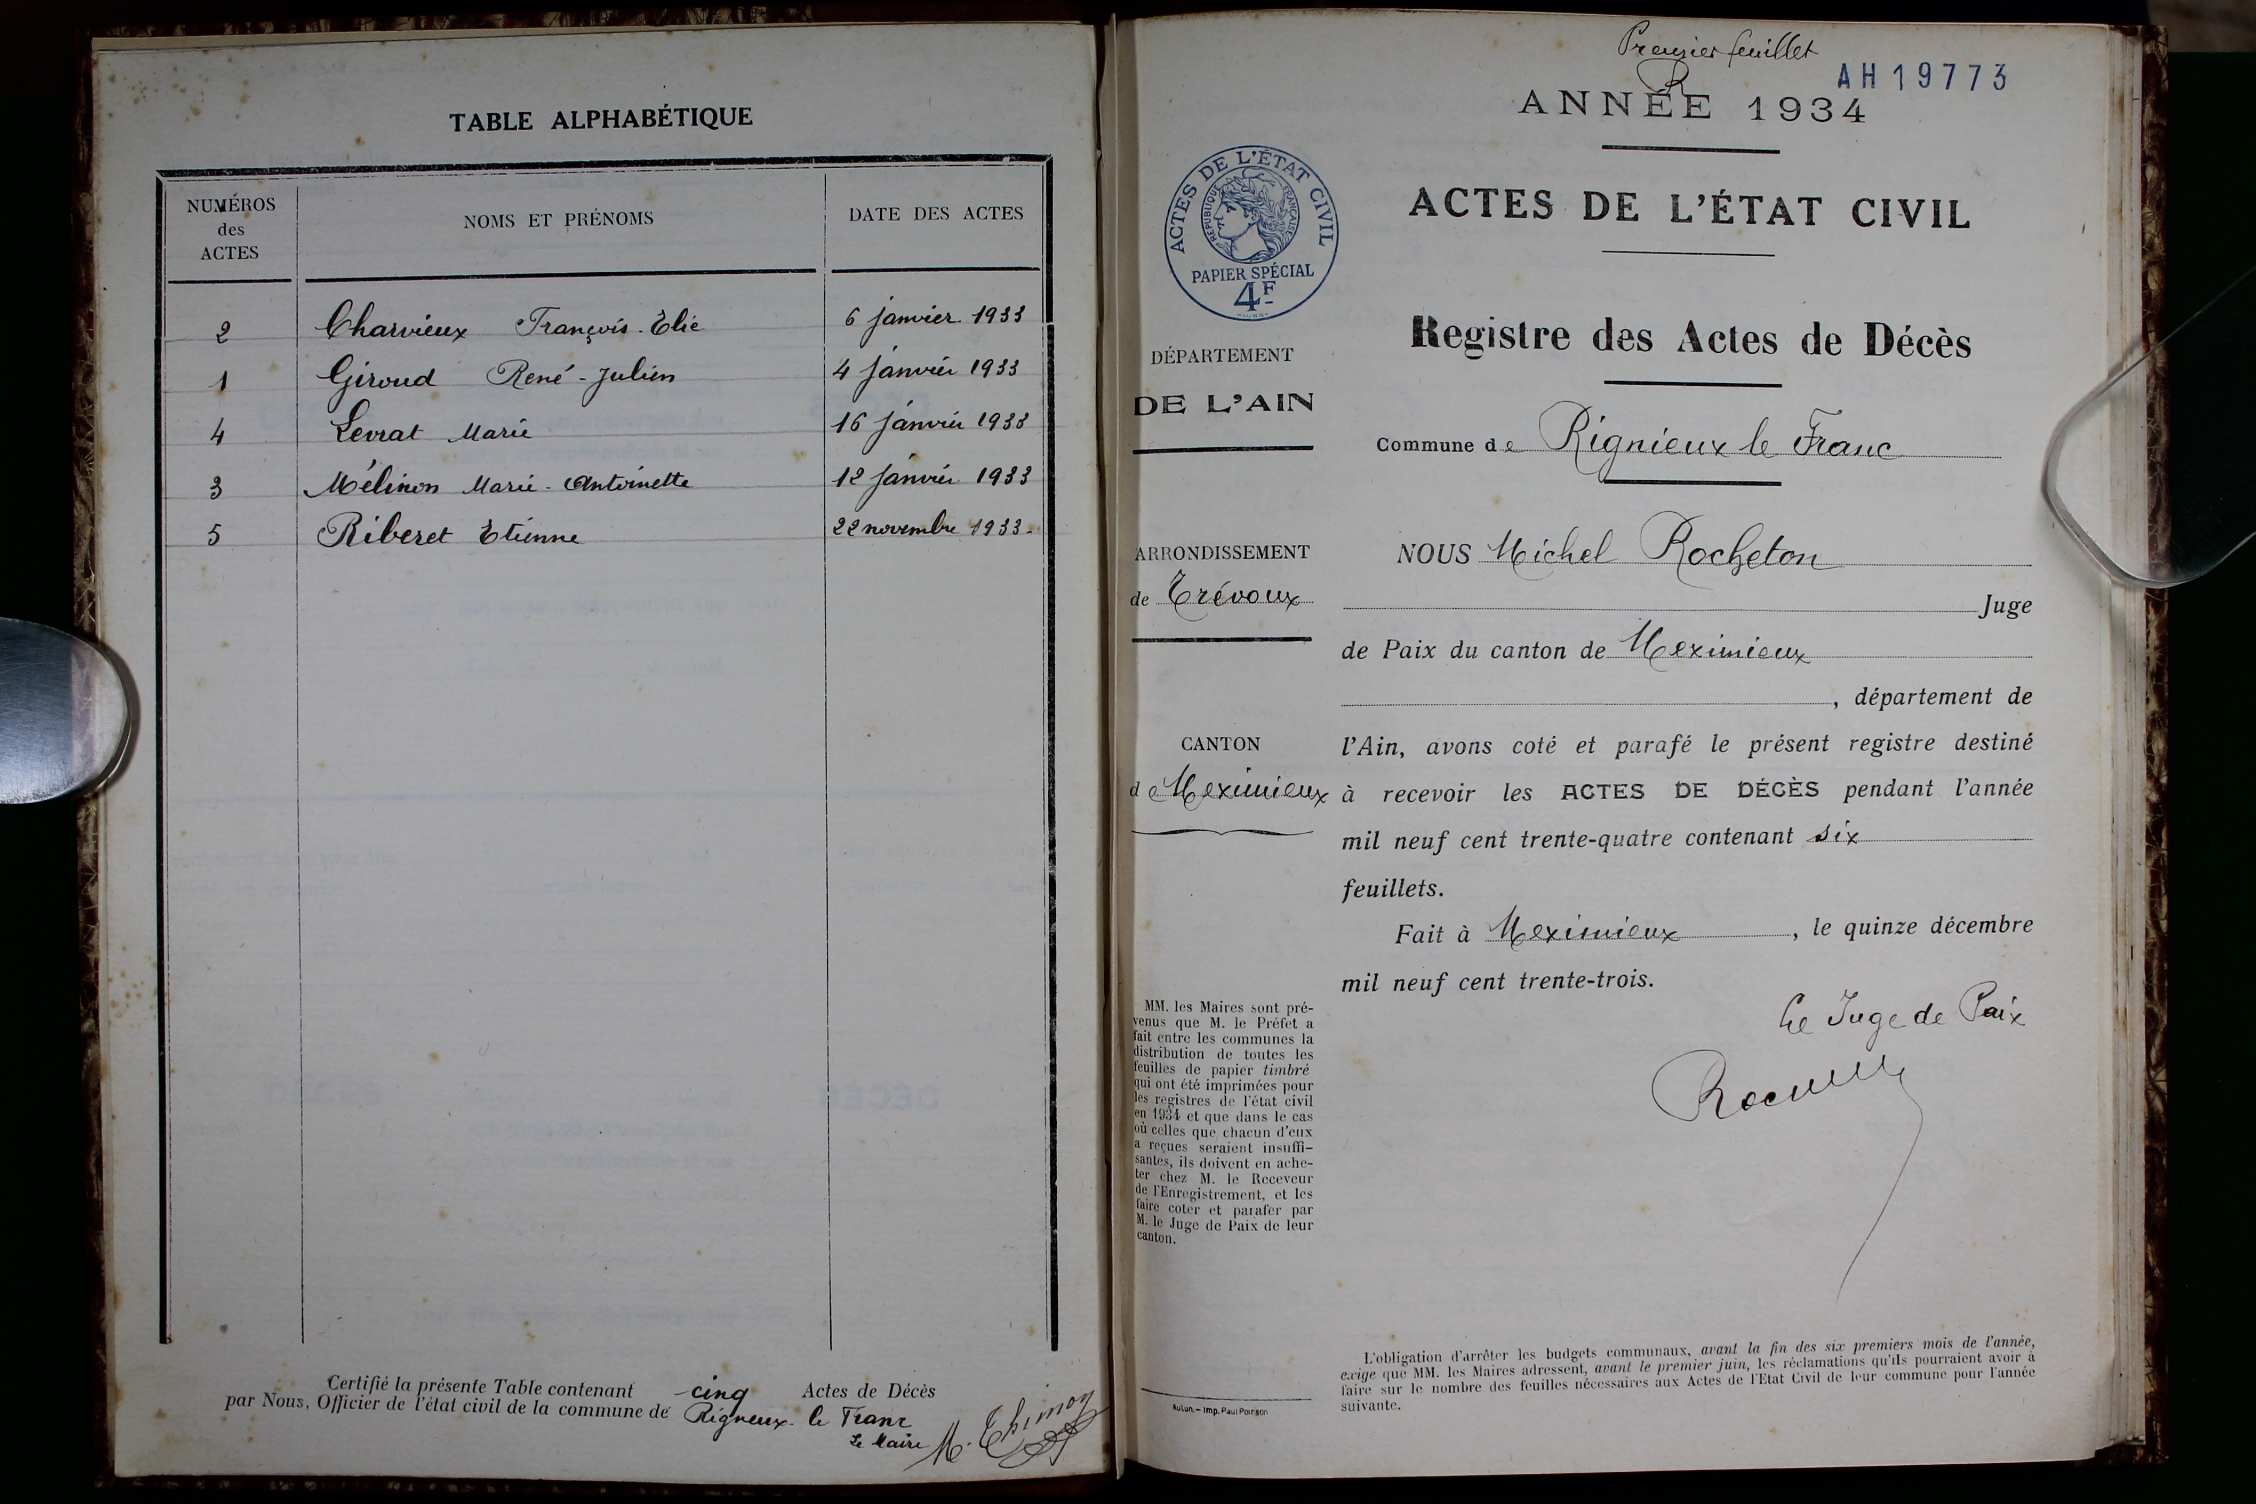 TABLE ALPHABÉTIQUE
NUMÉROS
des
ACTES
NOMS ET PRÉNOMS
DATE DES ACTES
2 Charvieux François-Elie 6 janvier 1933
1 Giroud René-Julien 4 janvier 1933
4 Levrat Marie 16 janvier 1933
3 Mélinon Marie-Antoinette 12 janvier 1933
5 Riberet Etienne 22 novembre 1933.
Certifié la présente Table contenant cinq Actes de Décès
par Nous, Officier de l'état civil de la commune de Rigneux-le Franc
Le Maire
M. Thimon
Premier feuillet
R
AH19773
ANNÉE 1934
ACTES DE L'ÉTAT CIVIL
RÉPUBLIQUE FRANÇAISE
PAPIER SPÉCIAL
4F
ACTES DE L'ÉTAT CIVIL
Registre des Actes de Décès
DÉPARTEMENT
DE L'AIN
Commune de Rignieux le Franc
ARRONDISSEMENT
de Trévoux
CANTON
de Meximieux
NOUS Michel Rocheton
Juge
de Paix du canton de Meximieux
, département de
l'Ain, avons coté et parafé le présent registre destiné
à recevoir les ACTES DE DÉCÈS pendant l'année
mil neuf cent trente-quatre contenant six
feuillets.
Fait à Meximieux, le quinze décembre
mil neuf cent trente-trois.
Le Juge de Paix
MM. les Maires sont pré-
venus que M. le Préfet a
fait entre les communes la
distribution de toutes les
feuilles de papier timbré
qui ont été imprimées pour
les registres de l'état civil
en 1934 et que dans le cas
où celles que chacun d'eux
a reçues seraient insuffi-
santes, ils doivent en ache-
ter chez M. le Receveur
de l'Enregistrement, et les
faire coter et parafer par
M. le Juge de Paix de leur
canton.
Autun. – Imp. Paul Poirson
L'obligation d'arrêter les budgets communaux, avant la fin des six premiers mois de l'année,
exige que MM. les Maires adressent, avant le premier juin, les réclamations qu'ils pourraient avoir à
faire sur le nombre des feuilles nécessaires aux Actes de l'Etat Civil de leur commune pour l'année
suivante.